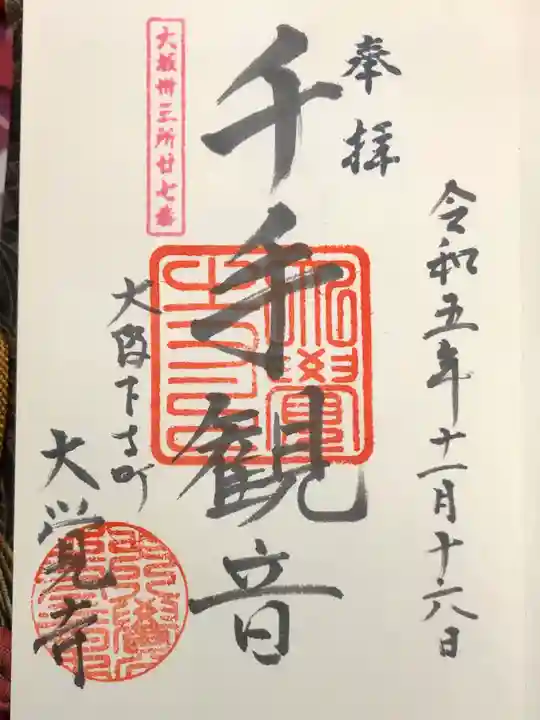 奉拝
令和五年十一月十六日
千手観音
大坂卅三所廿七番
大阪下寺町
大覚寺